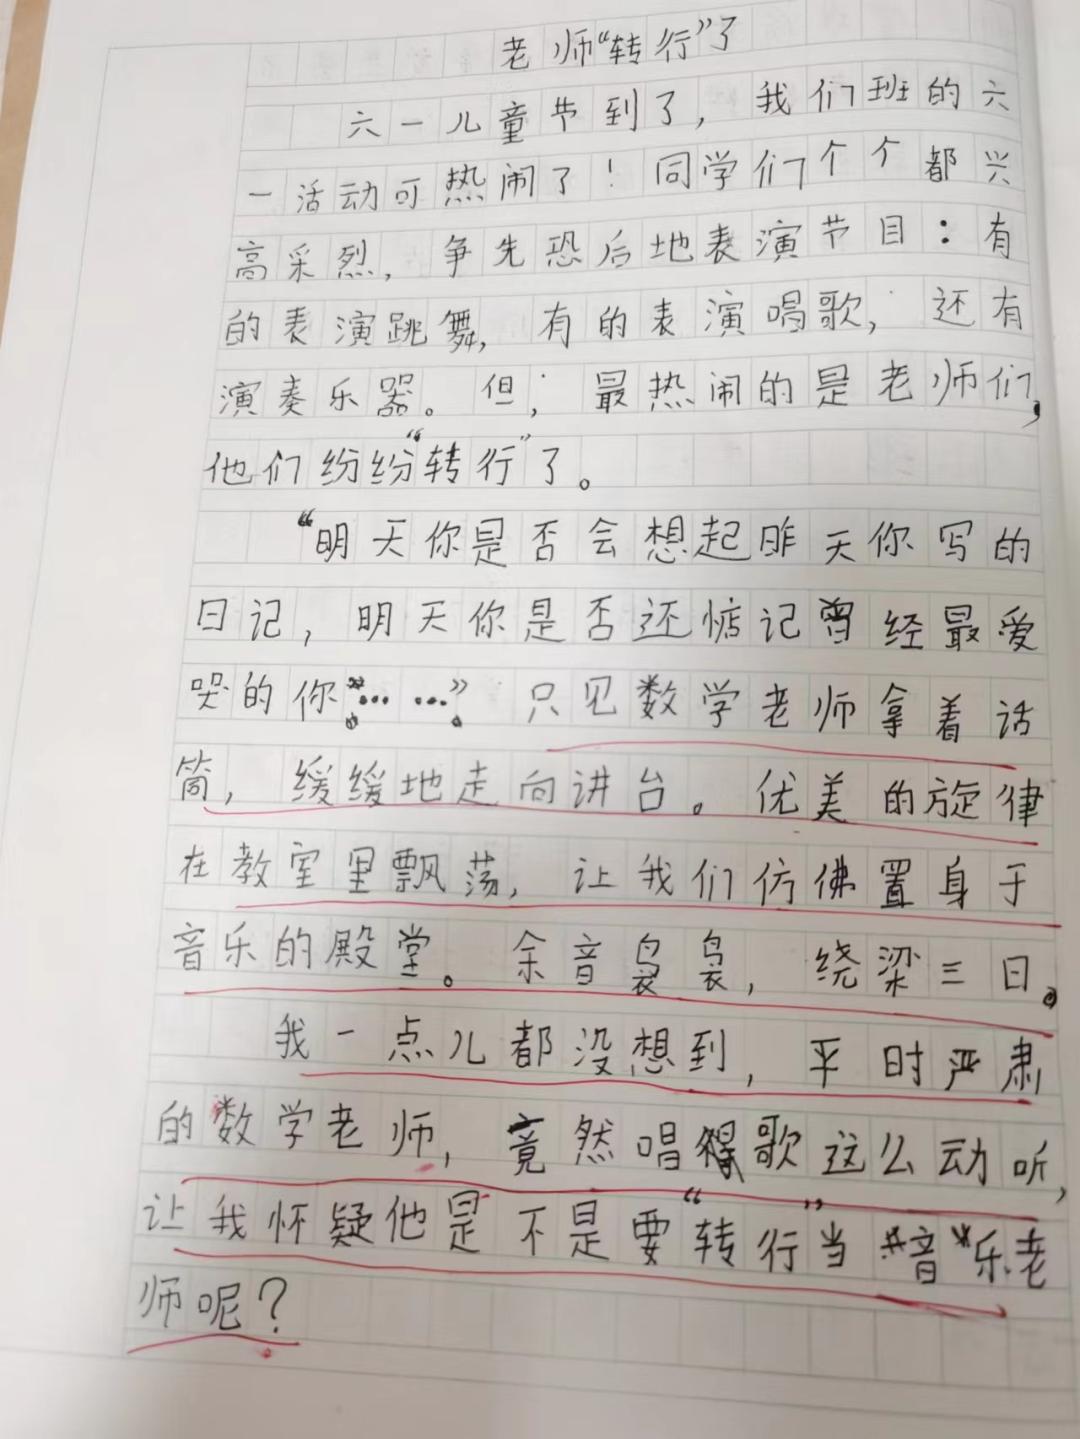 老师“转行”了
六一儿童节到了，我们班的六
一活动可热闹了！同学们个个都兴
高采烈，争先恐后地表演节目：有
的表演跳舞，有的表演唱歌，还有
演奏乐器。但，最热闹的是老师们，
他们纷纷“转行”了。
“明天你是否会想起昨天你写的
日记，明天你是否还惦记曾经最爱
哭的你……”只见数学老师拿着话
筒，缓缓地走向讲台。优美的旋律
在教室里飘荡，让我们仿佛置身于
音乐的殿堂。余音袅袅，绕梁三日。
我一点儿都没想到，平时严肃
的数学老师，竟然唱歌这么动听，
让我怀疑他是不是要“转行”当音乐老
师呢？